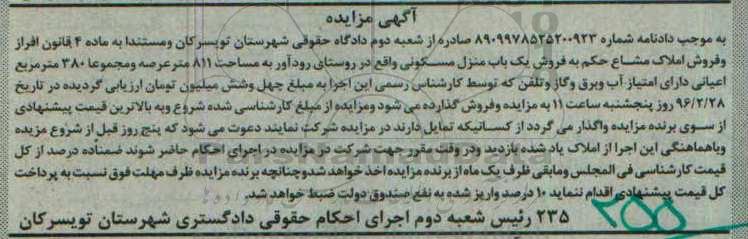 آگهی مزایده
به موجب دادنامه شماره ۸۹۰۹۹۷۸۵۲۵۲۰۰۹۲۳ صادره از شعبه دوم دادگاه حقوقی شهرستان تویسرکان ومستندا به ماده ۴ قانون افراز
وفروش املاک مشاع حکم به فروش یک باب منزل مسکونی واقع در روستای رودآور به مساحت ۸۱۱ مترعرصه ومجموعا ۳۸۰ مترمربع
اعیانی دارای امتیاز آب وبرق وگاز وتلفن که توسط کارشناس رسمی این اجرا به مبلغ چهل وشش میلیون تومان ارزیابی گردیده در تاریخ
۹۶/۲/۲۸ روز پنجشنبه ساعت ۱۱ به مزایده وفروش گذارده می شود ومزایده از مبلغ کارشناسی شده شروع وبه بالاترین قیمت پیشنهادی
از سوی برنده مزایده واگذار می گردد از کسانیکه تمایل دارند در مزایده شرکت نمایند دعوت می شود که پنج روز قبل از شروع مزیده
وباهماهنگی این اجرا از املاک یاد شده بازدید ودر وقت مقرر جهت شرکت در مزایده در اجرای احکام حاضر شوند ضمناده درصد از کل
قیمت کارشناسی فی المجلس ومابقی ظرف یک ماه از برنده مزایده اخذ خواهد شدو چنانچه برنده مزایده ظرف مهلت فوق نسبت به پرداخت
کل قیمت پیشنهادی اقدام ننماید ۱۰ درصد واریز شده به نفع صندوق دولت ضبط خواهد شد
۲۳۵ رئیس شعبه دوم اجرای احکام حقوقی دادگستری شهرستان تویسرکان
۲۵۵